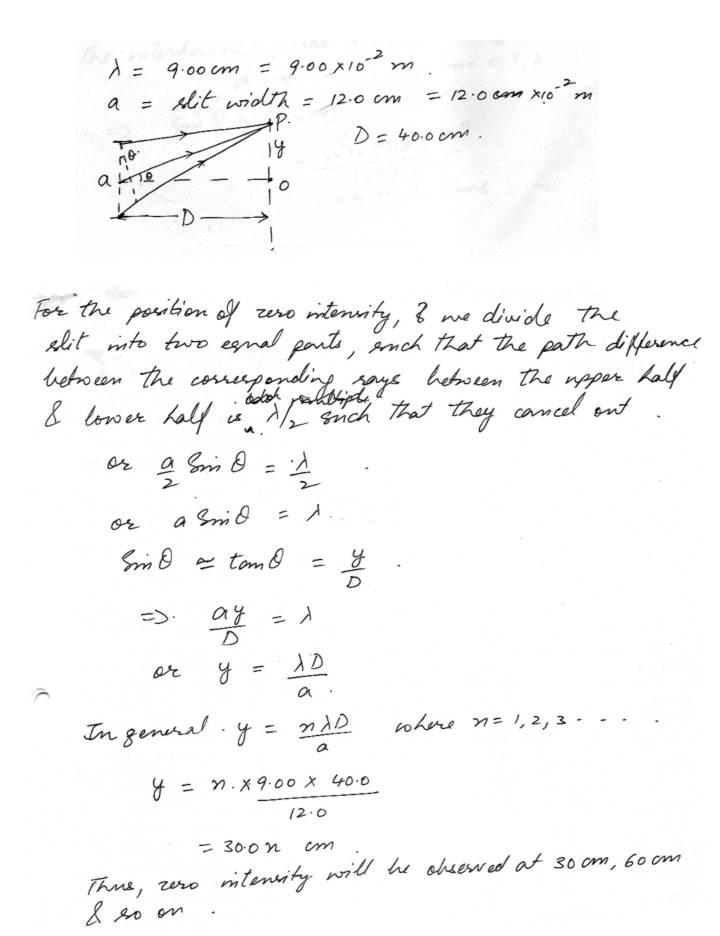 λ = 9.00 cm = 9.00 x 10⁻² m.
a = slit width = 12.0 cm = 12.0 cm x10⁻² m
P.
D = 40.0 cm.
y
θ
a
θ
O
D
For the position of zero intensity, & we divide the
slit into two equal parts, such that the path difference
between the corresponding rays between the upper half
& lower half is λ/2 such that they cancel out.
or a/2 Sin θ = λ/2
or a Sin θ = λ.
Sin θ ≃ tan θ = y/D.
=> ay/D = λ
or y = λD/a.
In general. y = nλD/a where n = 1, 2, 3 - - - .
y = n. x 9.00 x 40.0/12.0
= 30.0 n cm
Thus, zero intensity will be observed at 30 cm, 60 cm
& so on.